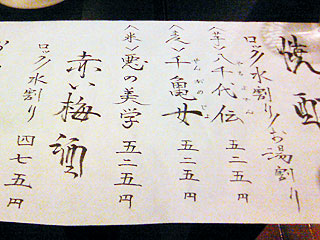 焼酎
ロック/水割り/お湯割り
<芋>八千代伝 五二五円
<麦>千亀女 五二五円
<米>悪の美学 五二五円
赤い梅酒
ロック/水割り 四七五円